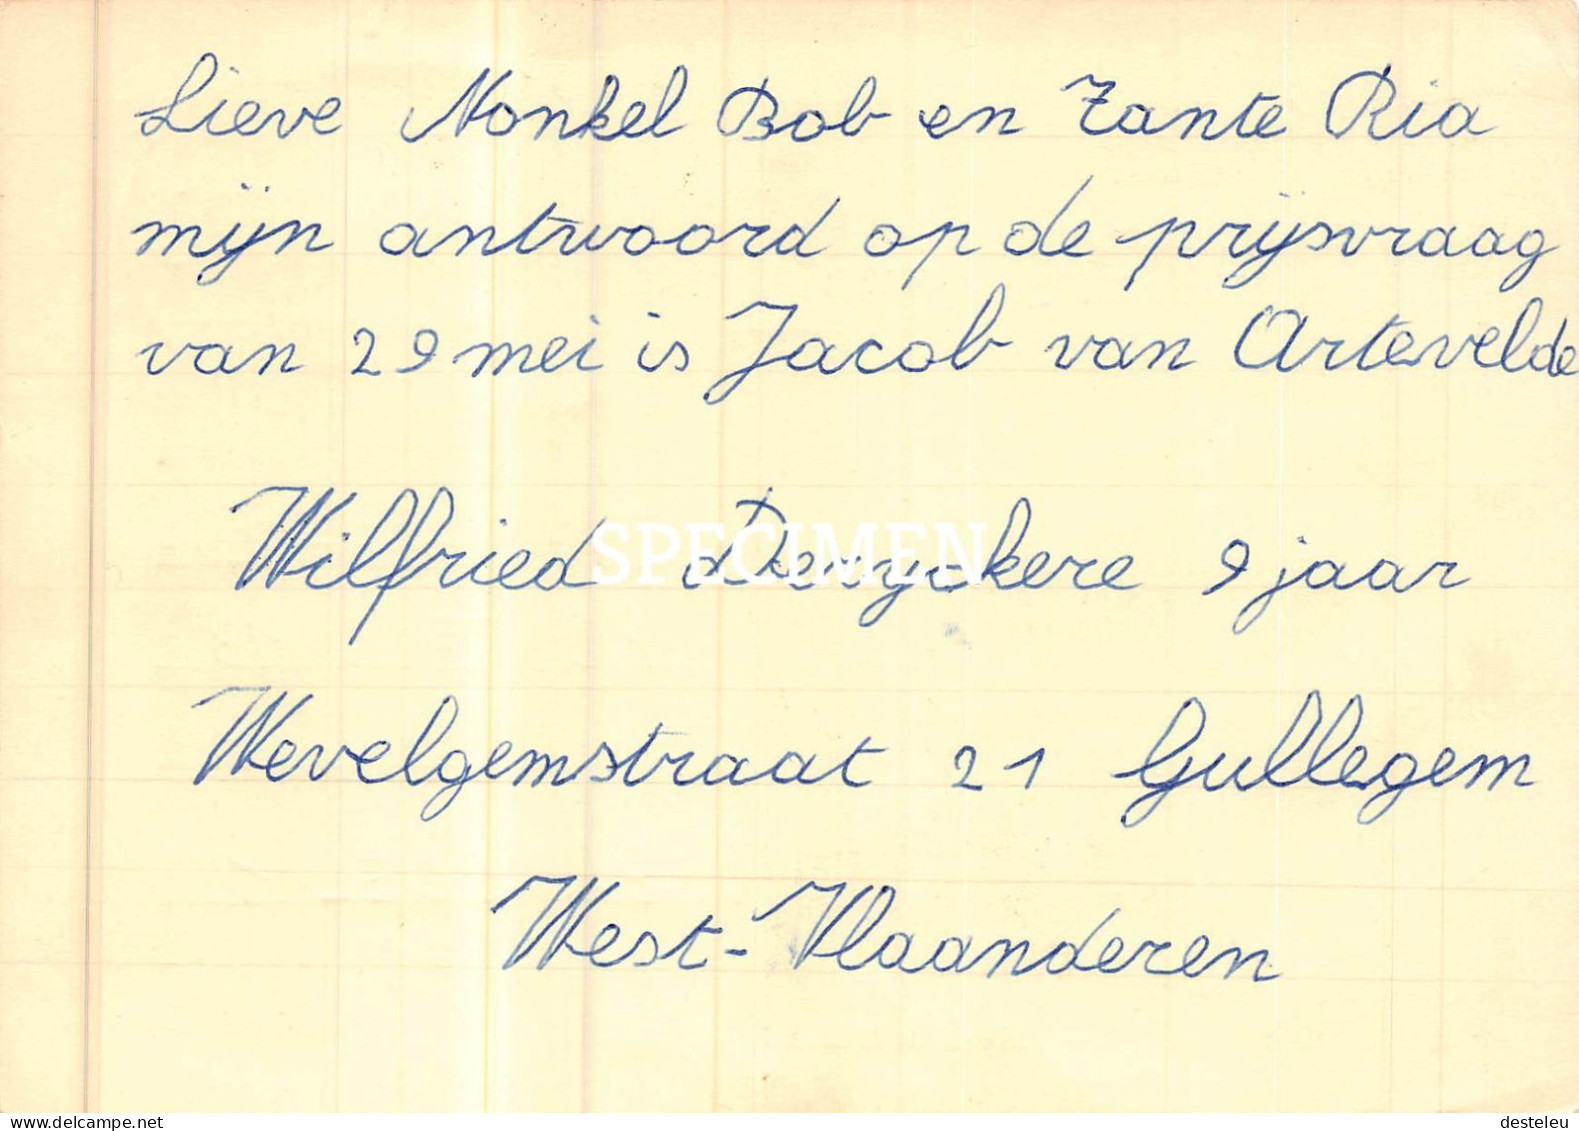 Lieve Nonkel Bob en Tante Ria
mijn antwoord op de prijsvraag
van 29 mei is Jacob van Artevelde
Wilfried Deryckere 9 jaar
SPECIMEN
Wevelgemstraat 21 Gullegem
West-Vlaanderen
www.delcampe.net
desteleu